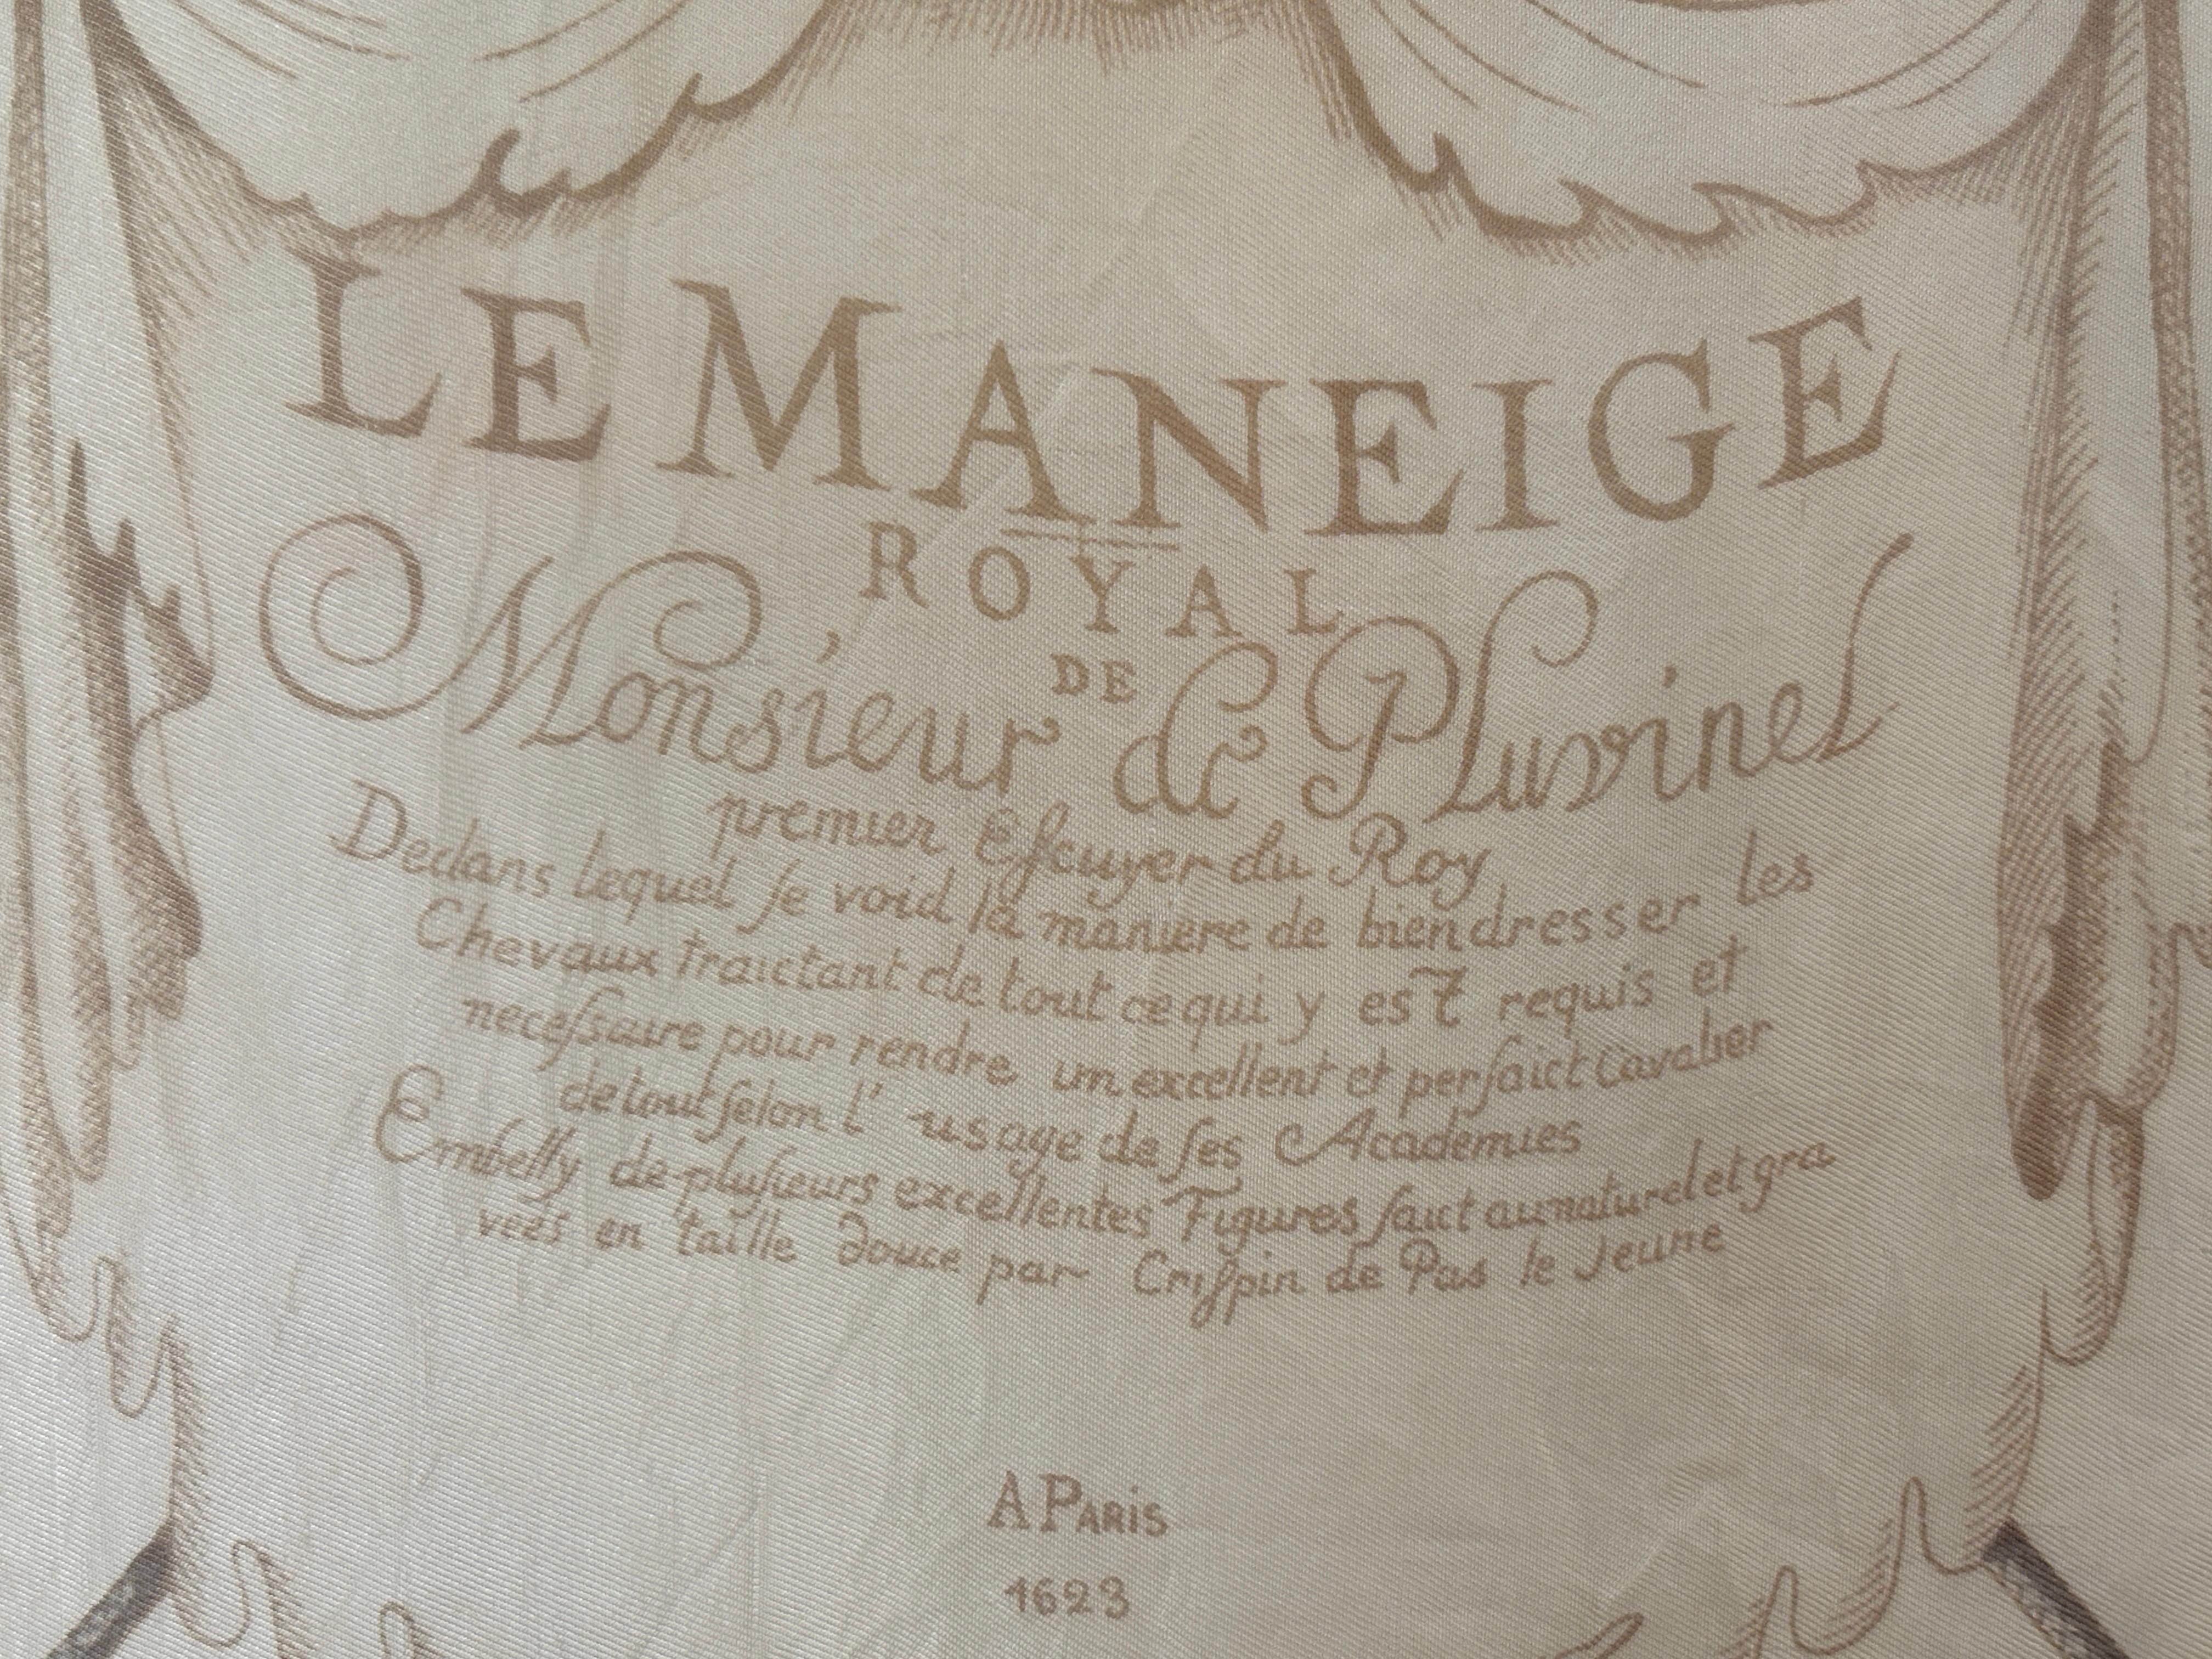 LE MANEIGE
ROYAL
DE
Monsieur de PLuvinel
premier Eſcuyer du Roy
Dedans lequel ſe void la maniere de bien dresser les
Chevaux traictant de tout ce qui y est requis et
neceſsaire pour rendre un excellent et perfaict Cavalier
de tout ſelon l' usage de ſes Academies
Embelly de pluſieurs excellentes Figures faict au naturel et gra
vees en taille douce par Criſpin de Pas le Jeune
A PARIS
1623